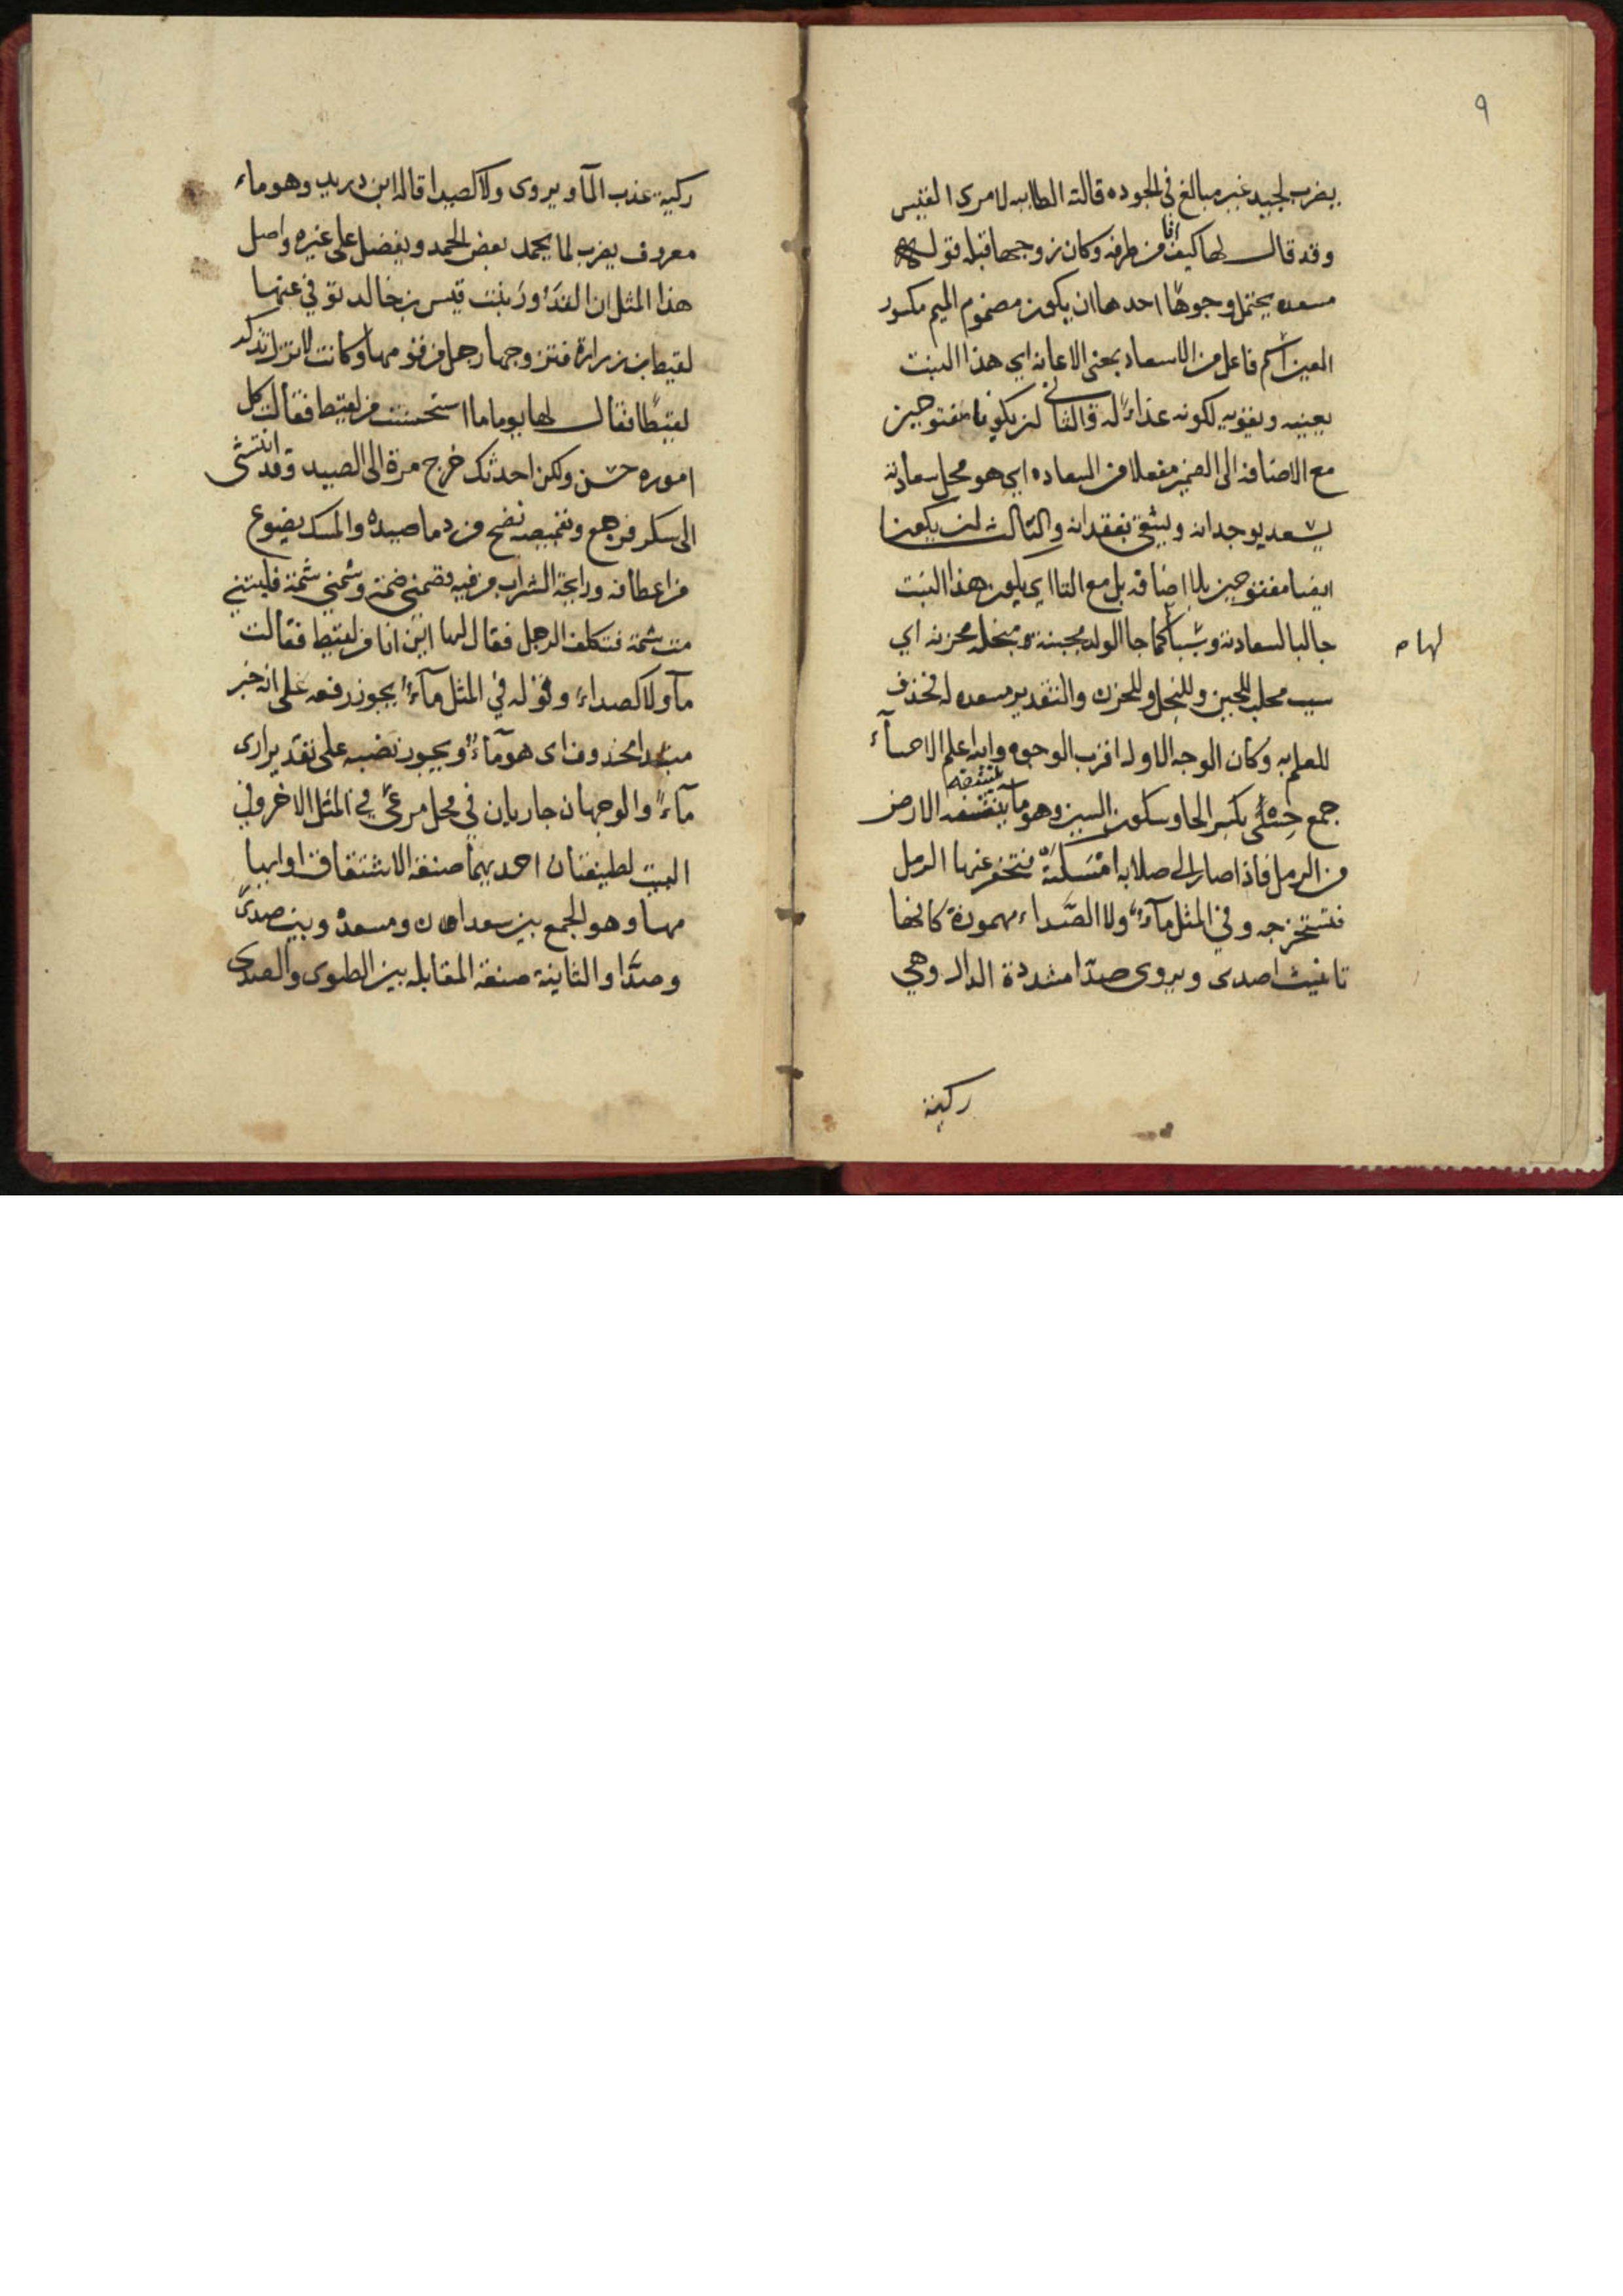 ٩
يضرب لجيد غير مبالغ في الجوده قالته الطاىىه لامرى القيس
وقد قال لها كيف انا من طرفه وكان زوجها قبله قوله
مسعده يحتمل وجوها احدها ان يكون مضموم الميم مكسور
العين اسم فاعل من الاسعاد بمعنى الاعانه اي هذا النبت
يعينه ويقويه لكونه غذاء له والثاني ان يكونا مفتوحين
مع الاضافه الى الضمير مفعلا من السعاده اي هو محل سعادته
يسعد بوجدانه ويشقى بفقدانه والثالث ان يكونا
ايضا مفتوحين بلا اضافه بل مع التا اي يكون هذا النبت
جالبا لسعادته وسببا كما جا الولد مجبنة مبخله محزنه اي
لها م
سبب مجلب للجبن وللبخل وللحزن والتقدير مسعده له فحذف
للعلم به وكان الوجه الاول اقرب الوجوه والله اعلم الاحسآء
جمع حسى بكسر الحا وسكون السين وهو ما تنشفه الارض
من الرمل فاذا صار الى صلابه امسكته فتحفر عنها الرمل
فتستخرجه وفي المثل مآء ولا الصداء مهموزة كانها
تانيث اصدى ويروى صدا مشددة الدال وهي
ركية
ركية عذب المآ ويروى ولا كصيدا قاله ابن دريد وهو ماء
معروف يضرب لما يحمد بعض الحمد ويفضل على غيره واصل
هذا المثل ان القذور بنت قيس بن خالد توفي عنها
لقيط بن زرارة فتزوجها رجل من قومها وكانت لا تزال تذكر
لقيطا فقال لها يوما ما استحسنت من لقيط فقالت كل
اموره حسن ولكن احدثك خرج مرة الى الصيد وقد انتشى
الى سكر فرجع وبقميصه نضح من دما صيده والمسك يضوع
من اعطافه ورايحة الشراب من فيه فضمني ضمة وشمني شمة فليتني
مت شمة فتكلف الرجل فقال لها اين انا من لقيط فقالت
مآ ولا كصداء وقوله في المثل مآء يجوز رفعه على انه خبر
مبتدا محذوف اى هو مآء ويجوز نصبه على تقدير ارى
مآء والوجهان جاريان في محل مرعى في المثل الاخر وفي
البيت لطيفتان احديهما صنعة الاشتقاق او ايها
مها وهو الجمع بين سعدان ومسعده وبين صدى
وصدا والثانية صنعة المقابله بين الطوى والصدى